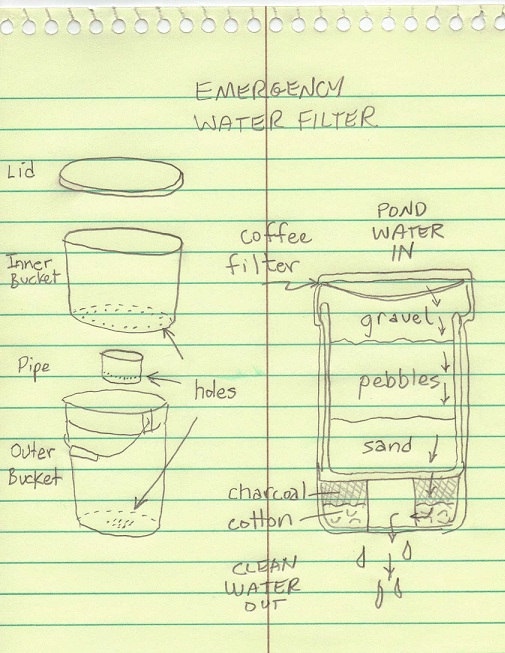 EMERGENCY
WATER FILTER
Lid
Inner
Bucket
Pipe
holes
Outer
Bucket
POND
WATER
IN
coffee
filter
gravel
pebbles
sand
charcoal
cotton
CLEAN
WATER
OUT